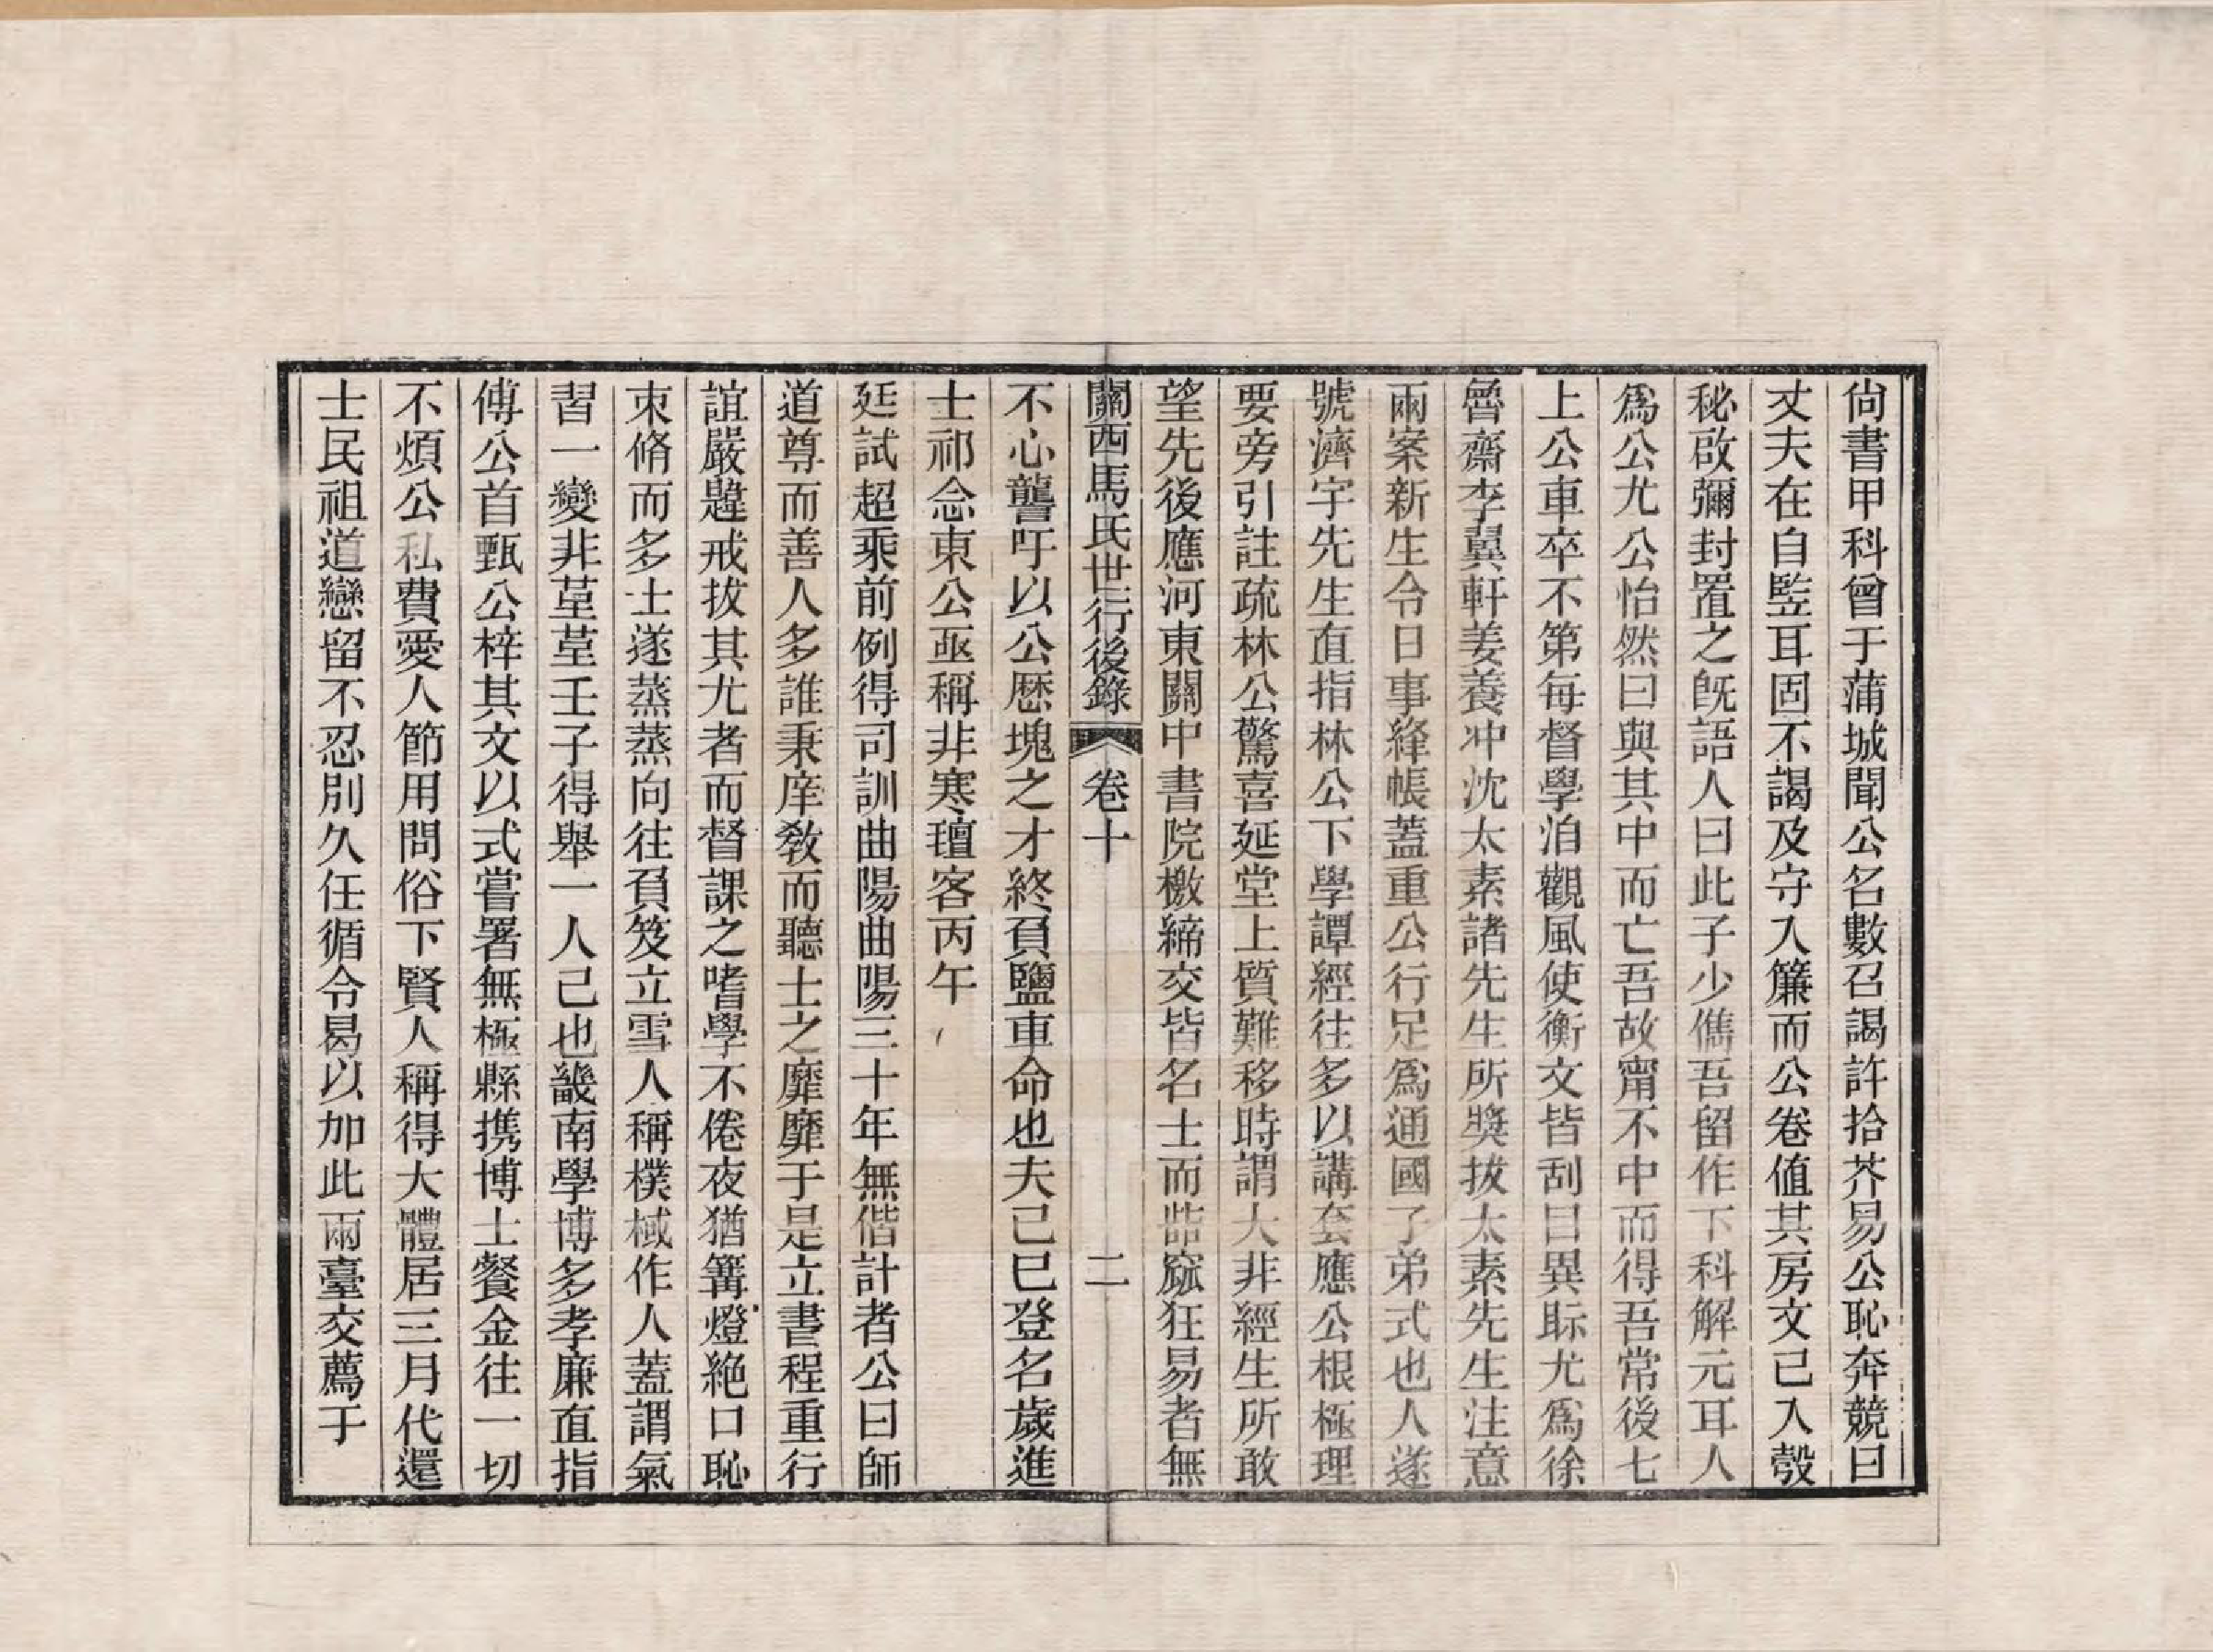 尙書甲科曾于蒲城聞公名數召謁許拾芥易公恥奔競曰
丈夫在自監耳固不謁及守入簾而公卷値其房文已入彀
秘啟彌封置之旣語人曰此子少儁吾留作下科解元耳人
爲公尤公怡然曰與其中而亡吾故甯不中而得吾常後七
上公車卒不第每督學洎觀風使衡文皆刮目異眎尤爲徐
魯齋李翼軒姜養冲沈太素諸先生所獎拔太素先生注意
兩案新生令日事絳帳蓋重公行足爲通國子弟式也人遂
號濟宇先生直指林公下學譚經往多以講套應公根極理
要旁引註疏林公驚喜延堂上質難移時謂大非經生所敢
望先後應河東關中書院檄締交皆名士而啙窳狂易者無
關西馬氏世行後錄 卷十 二
不心讋吁以公厯塊之才終負鹽車命也夫己巳登名歲進
士祁念東公亟稱非寒璮客丙午
廷試超乘前例得司訓曲陽曲陽三十年無偕計者公曰師
道尊而善人多誰秉庠敎而聽士之靡靡于是立書程重行
誼嚴韙戒拔其尤者而督課之嗜學不倦夜猶篝燈絶口恥
束脩而多士遂蒸蒸向往負笈立雪人稱樸棫作人蓋謂氣
習一變非堇堇壬子得舉一人己也畿南學博多孝廉直指
傅公首甄公梓其文以式嘗署無極縣携博士餐金往一切
不煩公私費愛人節用問俗下賢人稱得大體居三月代還
士民祖道戀留不忍別久任循令曷以加此兩臺交薦于